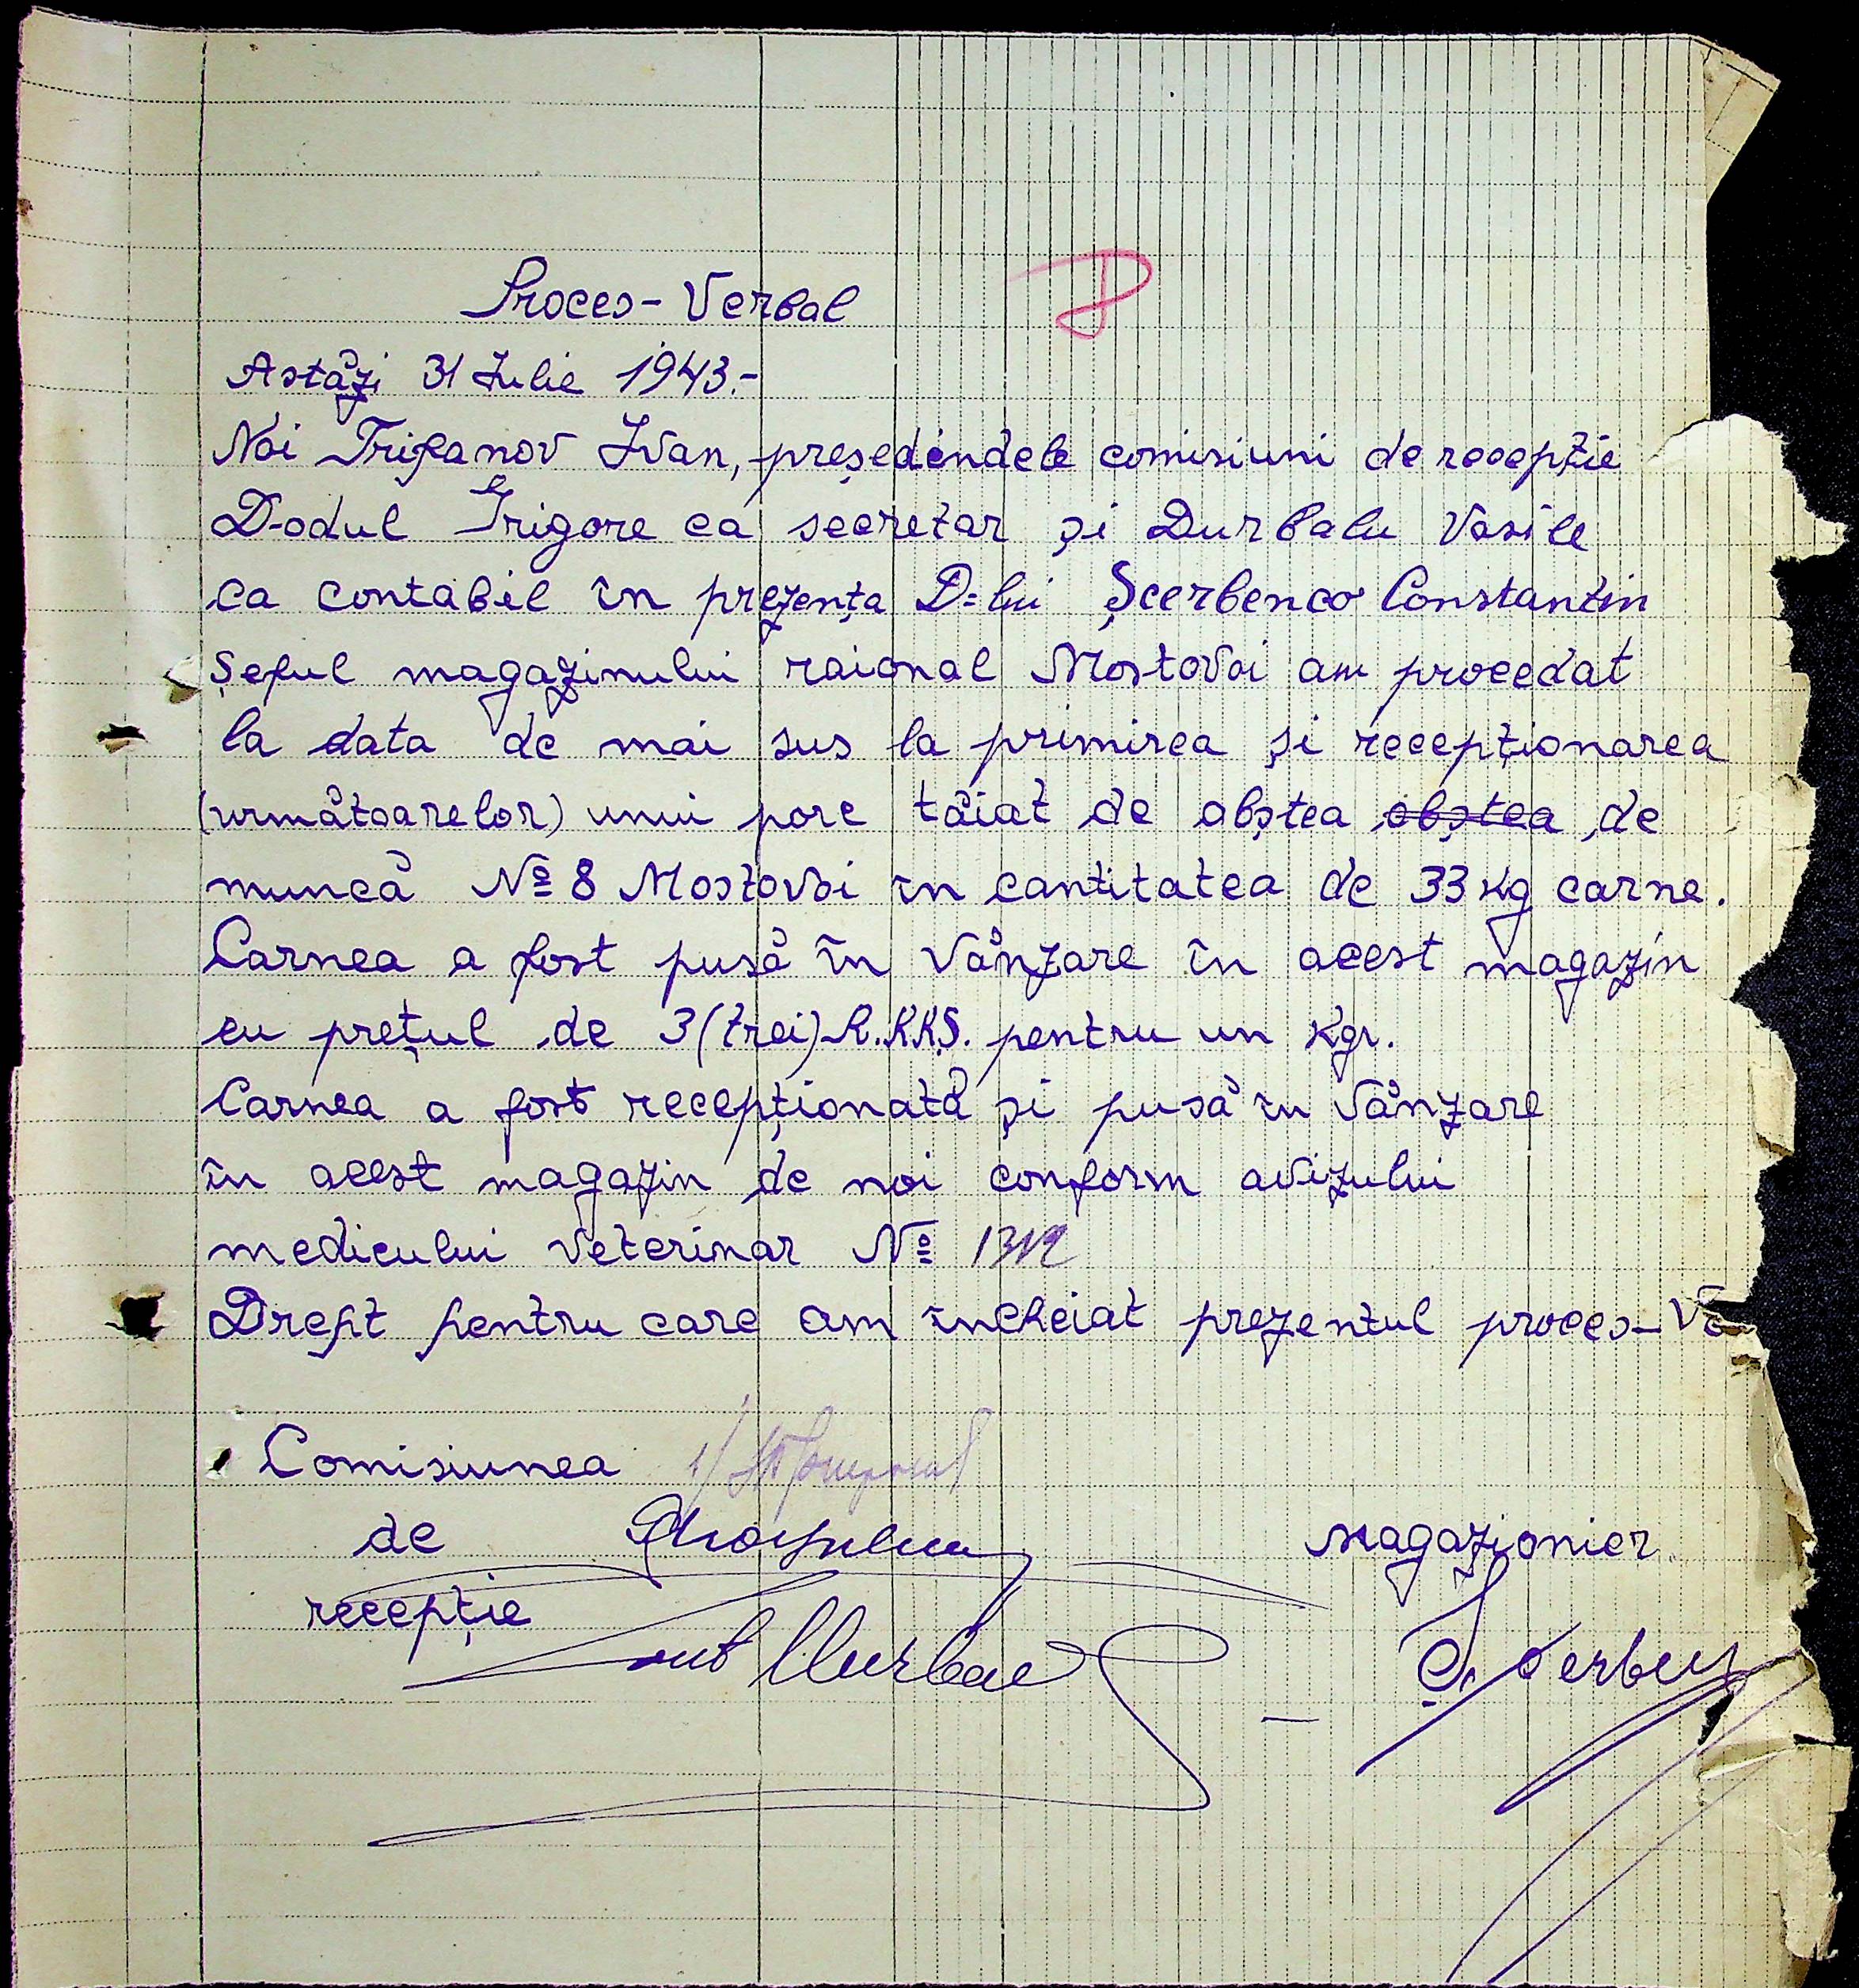 Proces-Verbal
Astăzi 31 Iulie 1943.-
Noi Trifanov Ivan, preşedendele comisiuni de recepţie
D-odul Grigore ca secretar şi Durbalu Vasile
ca contabil în prezenţa D=lui Şcerbenco Constantin
Şeful magazinului raional Mostovoi am procedat
la data de mai sus la primirea şi recepţionarea
(următoarelor) unui porc tăiat de obştea obştea de
muncă № 8 Mostovoi în cantitatea de 33 kg carne.
Carnea a fost pusă în vânzare în acest magazin
cu preţul de 3 (trei) R.KKS. pentru un kgr.
Carnea a fost recepţionată şi pusă în vânzare
în acest magazin de noi conform avizului
medicului veterinar №
Drept pentru care am încheiat prezentul proces-Ve
Comisiunea
de
Magazionier
recepţie